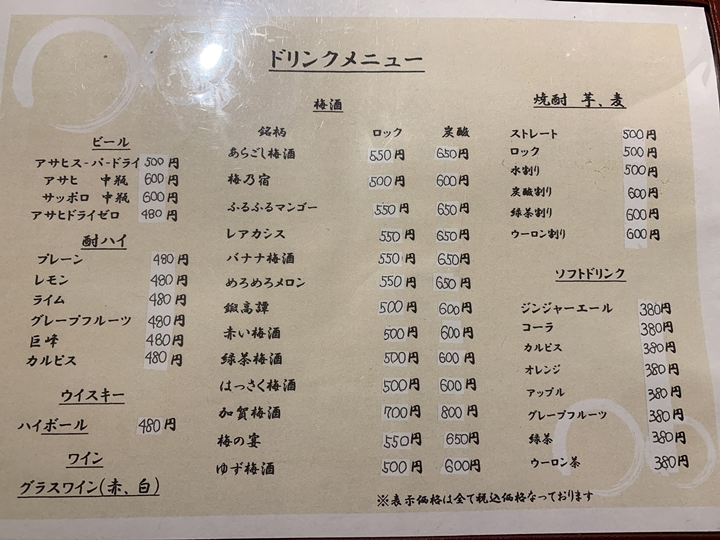 ドリンクメニュー
ビール
アサヒスーパードライ 500円
アサヒ 中瓶 600円
サッポロ 中瓶 600円
アサヒドライゼロ 480円
酎ハイ
プレーン 480円
レモン 480円
ライム 480円
グレープフルーツ 480円
巨峰 480円
カルピス 480円
ウイスキー
ハイボール 480円
ワイン
グラスワイン(赤、白)
梅酒
銘柄 ロック 炭酸
あらごし梅酒 550円 650円
梅乃宿 500円 600円
ふるふるマンゴー 550円 650円
レアカシス 550円 650円
バナナ梅酒 550円 650円
めろめろメロン 550円 650円
鍛高譚 500円 600円
赤い梅酒 500円 600円
緑茶梅酒 500円 600円
はっさく梅酒 500円 600円
加賀梅酒 700円 800円
梅の宴 550円 650円
ゆず梅酒 500円 600円
焼酎 芋、麦
ストレート 500円
ロック 500円
水割り 500円
炭酸割り 600円
緑茶割り 600円
ウーロン割り 600円
ソフトドリンク
ジンジャーエール 380円
コーラ 380円
カルピス 380円
オレンジ 380円
アップル 380円
グレープフルーツ 380円
緑茶 380円
ウーロン茶 380円
※表示価格は全て税込価格なっております